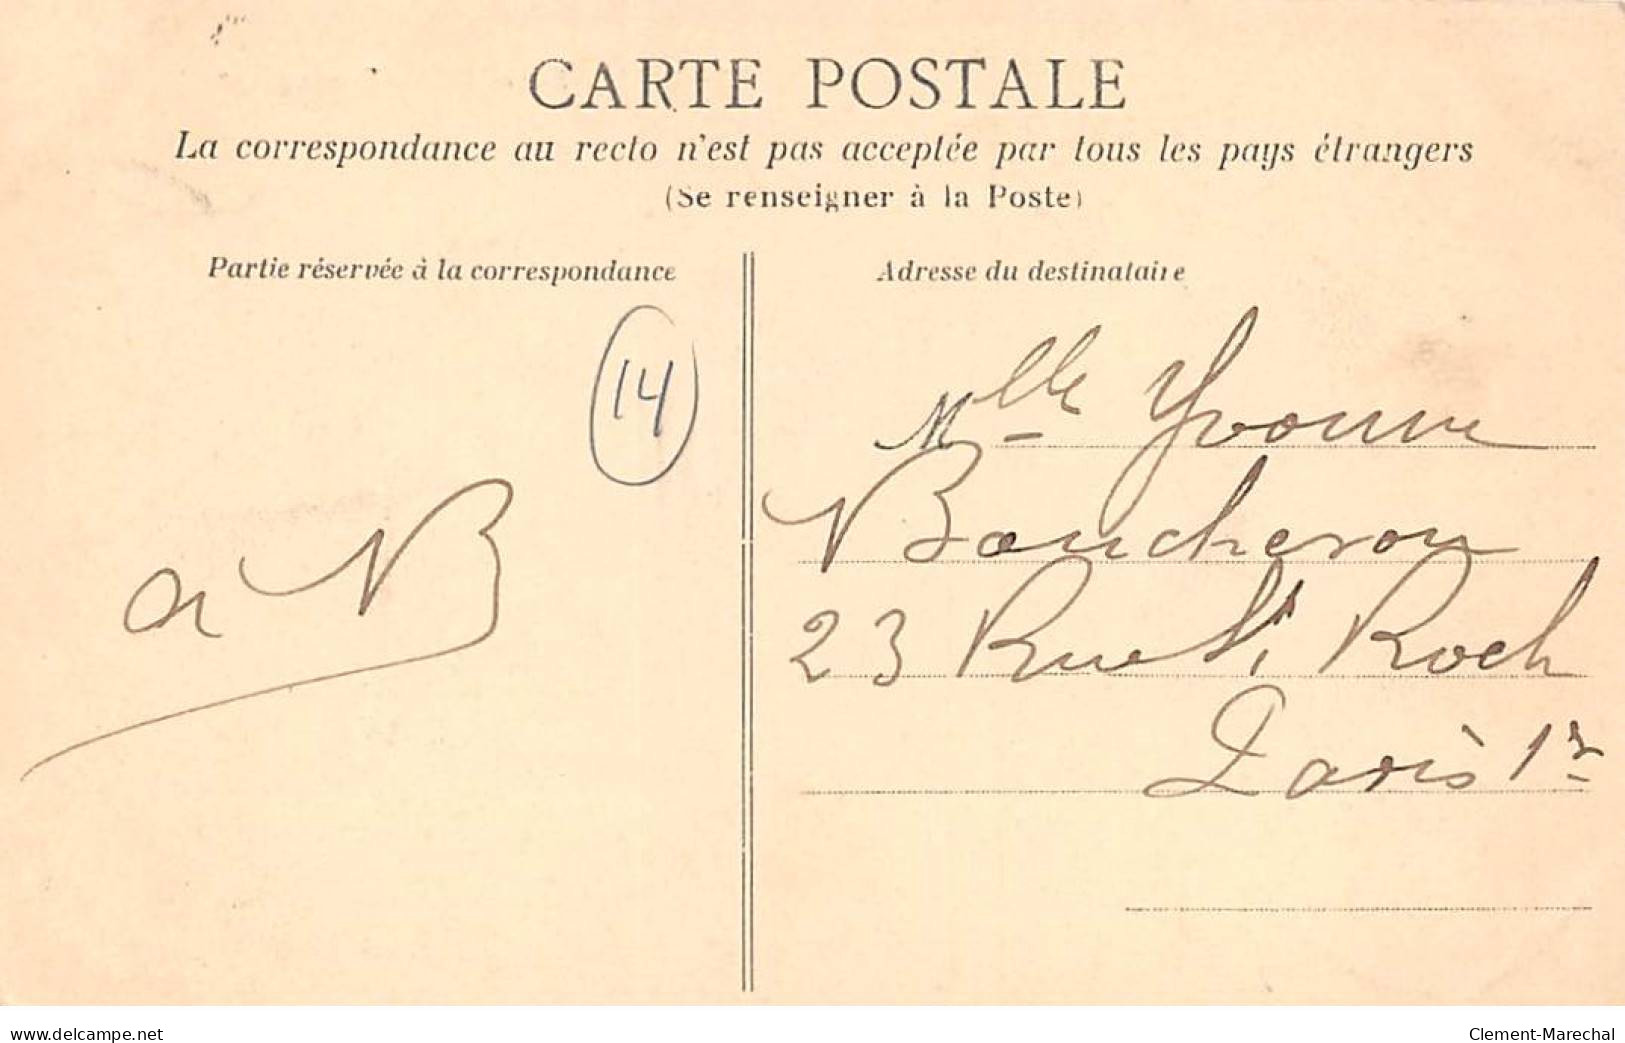 CARTE POSTALE
La correspondance au recto n'est pas acceptée par tous les pays étrangers
(Se renseigner à la Poste)
Partie réservée à la correspondance
14
B
Adresse du destinataire
Mlle Yvonne
Boucheron
23 Rue St Roch
Paris 1er
www.delcampe.net
Clement-Marechal